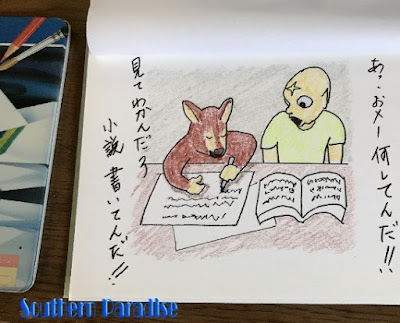 あ、おめー何してんだ!!
見てわかんだろ
小説書いてんだ!!
Southern Paradise